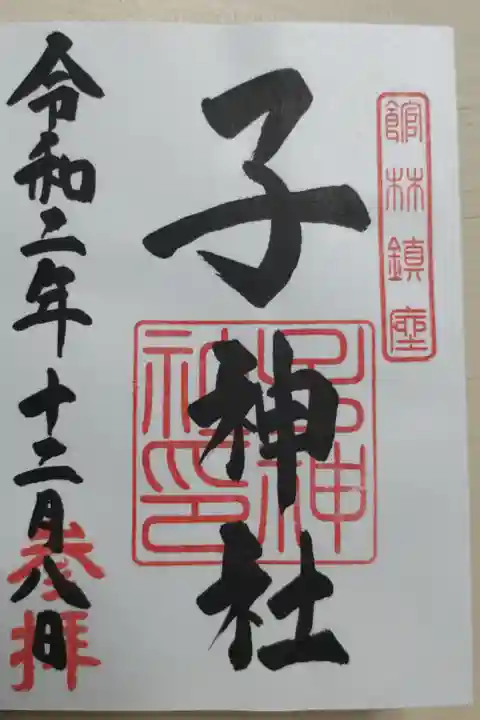 館林鎮座
子神社
子神社印
令和二年十二月八日
参拝